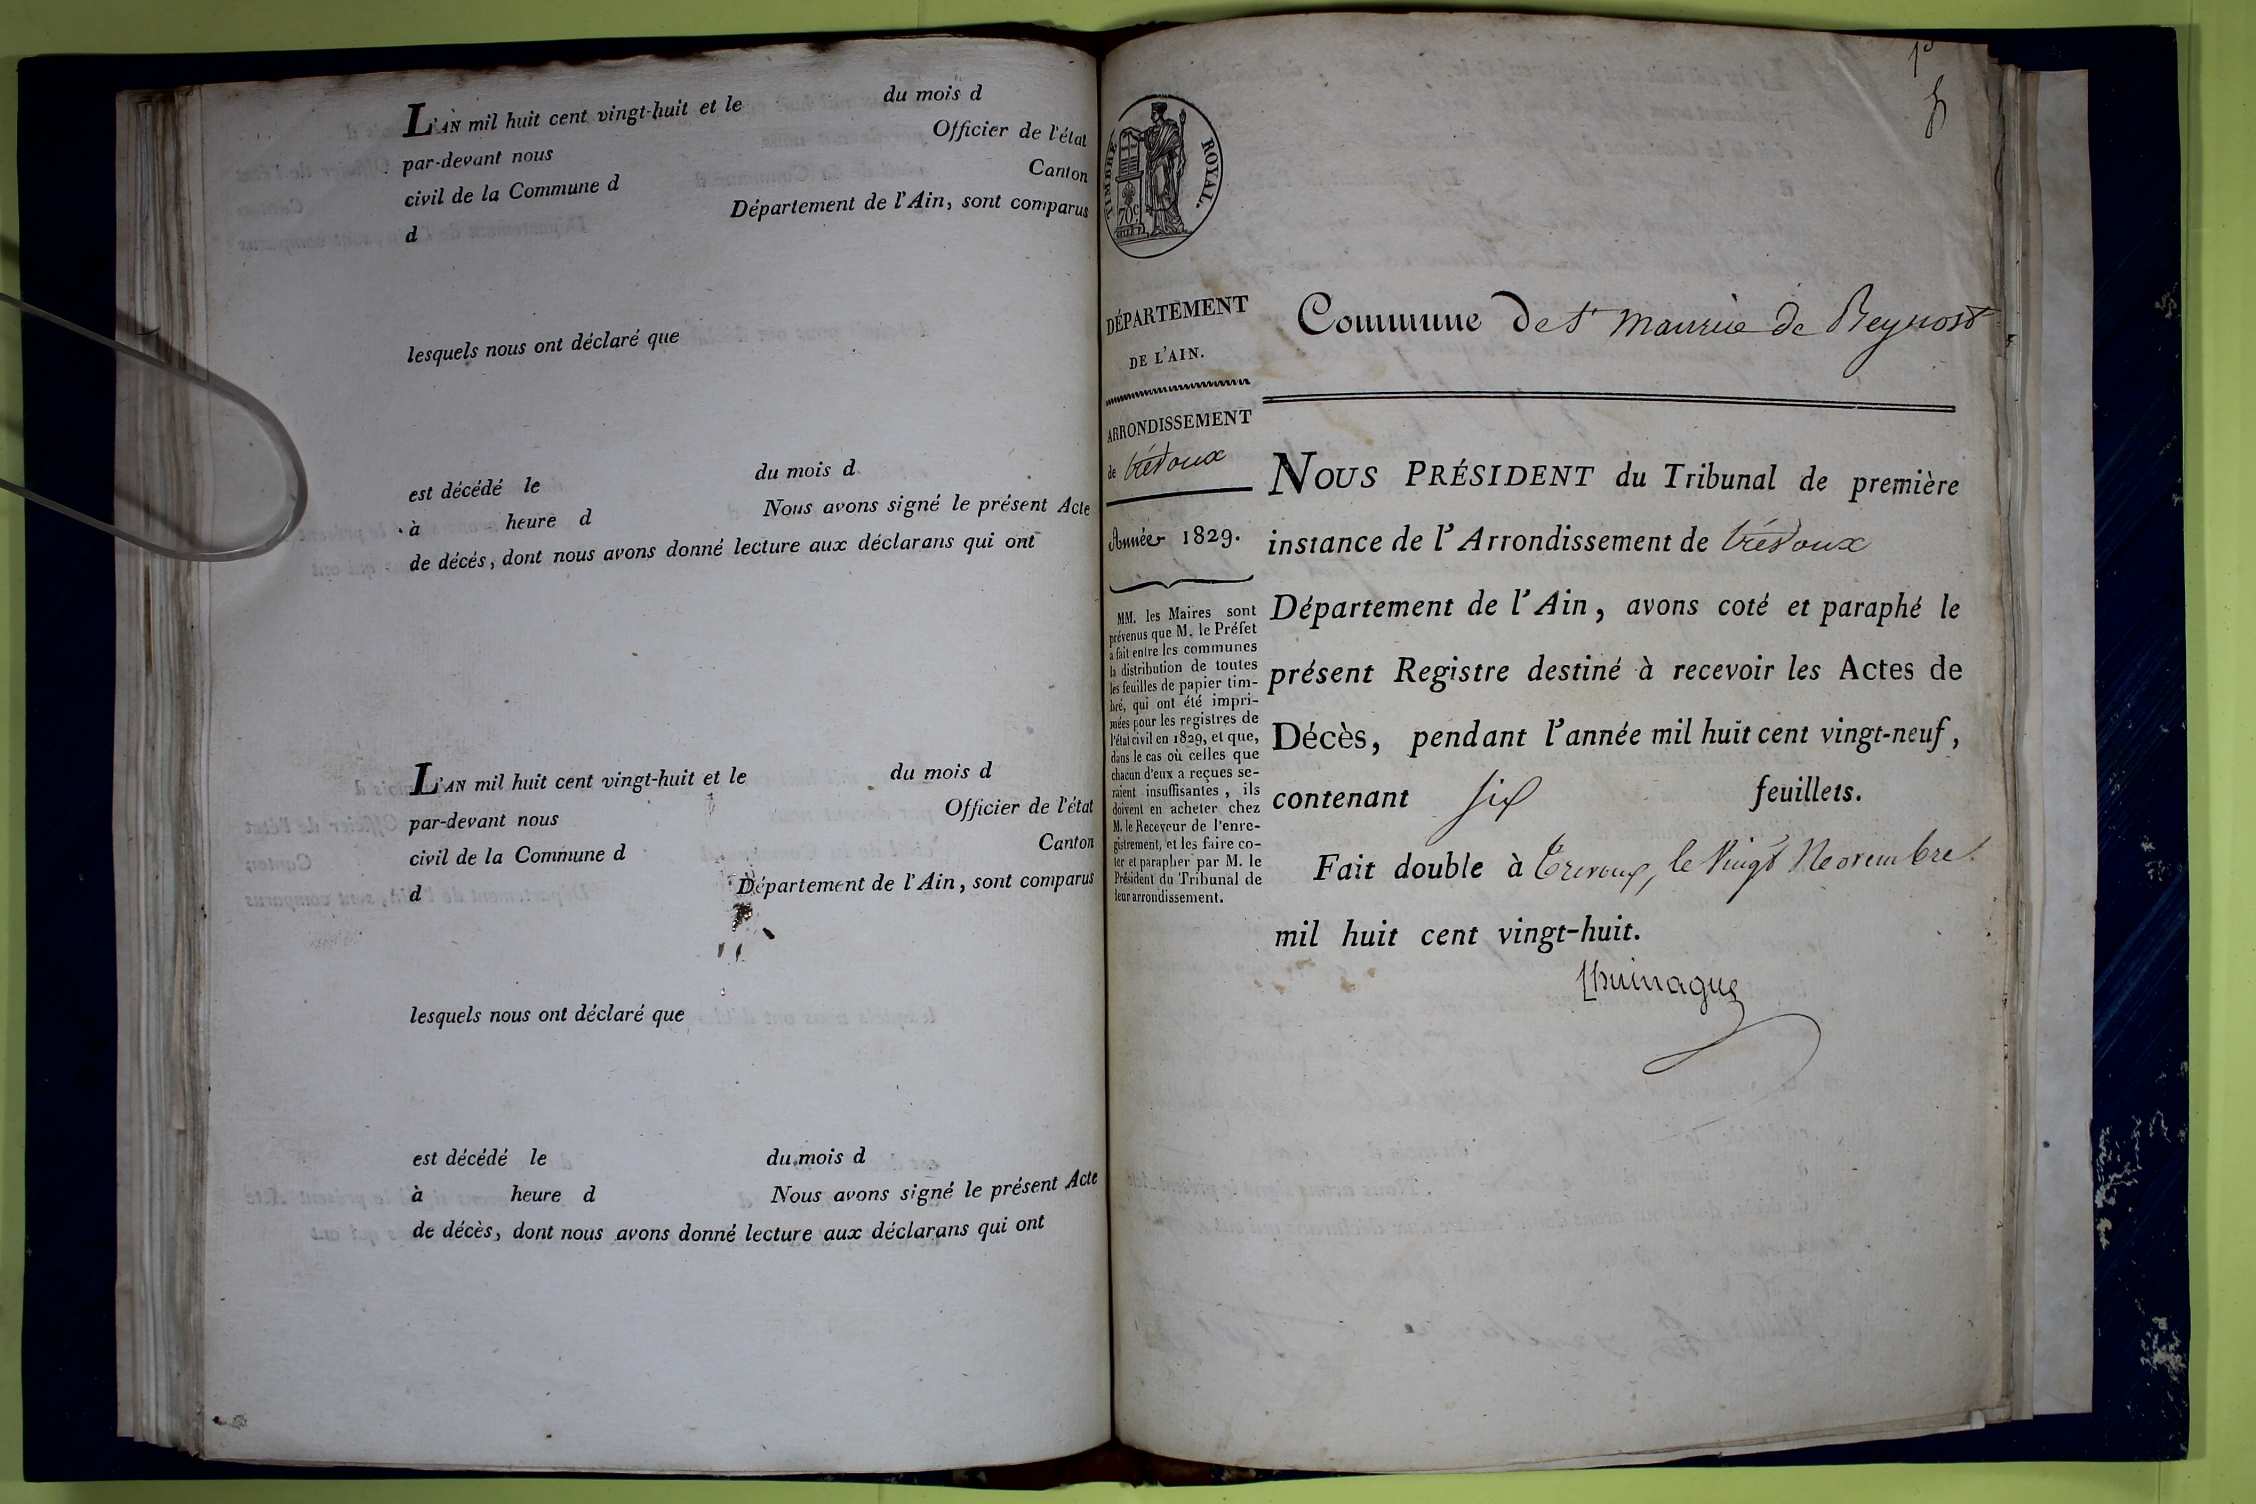 L'AN mil huit cent vingt-huit et le du mois d
par-devant nous Officier de l'état
civil de la Commune d Canton
d Département de l'Ain, sont comparus
lesquels nous ont déclaré que
est décédé le du mois d
à heure d Nous avons signé le présent Acte
de décés, dont nous avons donné lecture aux déclarans qui ont
L'AN mil huit cent vingt-huit et le du mois d
par-devant nous Officier de l'état
civil de la Commune d Canton
d Département de l'Ain, sont comparus
lesquels nous ont déclaré que
est décédé le du mois d
à heure d Nous avons signé le présent Acte
de décès, dont nous avons donné lecture aux déclarans qui ont
TIMBRE ROYAL.
70c
DÉPARTEMENT
DE L'AIN.
ARRONDISSEMENT
de trévoux
Année 1829.
MM. les Maires sont
prévenus que M. le Préfet
a fait entre les communes
la distribution de toutes
les feuilles de papier tim-
bré, qui ont été impri-
mées pour les registres de
l'état civil en 1829, et que,
dans le cas où celles que
chacun d'eux a reçues se-
raient insuffisantes, ils
doivent en acheter chez
M. le Receveur de l'enre-
gistrement, et les faire co-
ter et parapher par M. le
Président du Tribunal de
leur arrondissement.
Commune de St maurice de Beynost
NOUS PRÉSIDENT du Tribunal de première
instance de l'Arrondissement de trévoux
Département de l'Ain, avons coté et paraphé le
présent Registre destiné à recevoir les Actes de
Décès, pendant l'année mil huit cent vingt-neuf,
contenant six feuillets.
Fait double à Trevoux, le Vingt Novembre
mil huit cent vingt-huit.